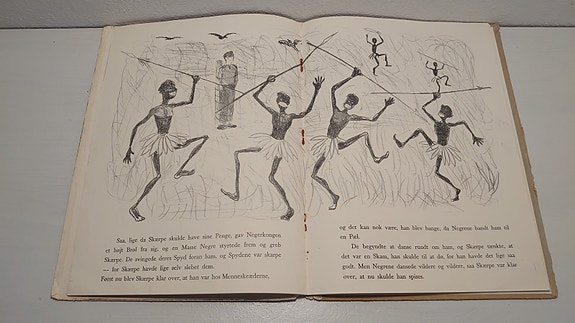 Saa, lige da Skærpe skulde have sine Penge, gav Negerkongen
et højt Brøl fra sig, og en Masse Negre styrtede frem og greb
Skærpe. De svingede deres Spyd foran ham, og Spydene var skarpe
— for Skærpe havde lige selv slebet dem.
Først nu blev Skærpe klar over, at han var hos Menneskeæderne,
og det kan nok være, han blev bange, da Negrene bandt ham til
en Pæl.
De begyndte at danse rundt om ham, og Skærpe tænkte, at
det var en Skam, han skulde til at dø, for han havde det lige saa
godt. Men Negrene dansede vildere og vildere, saa Skærpe var klar
over, at nu skulde han spises.